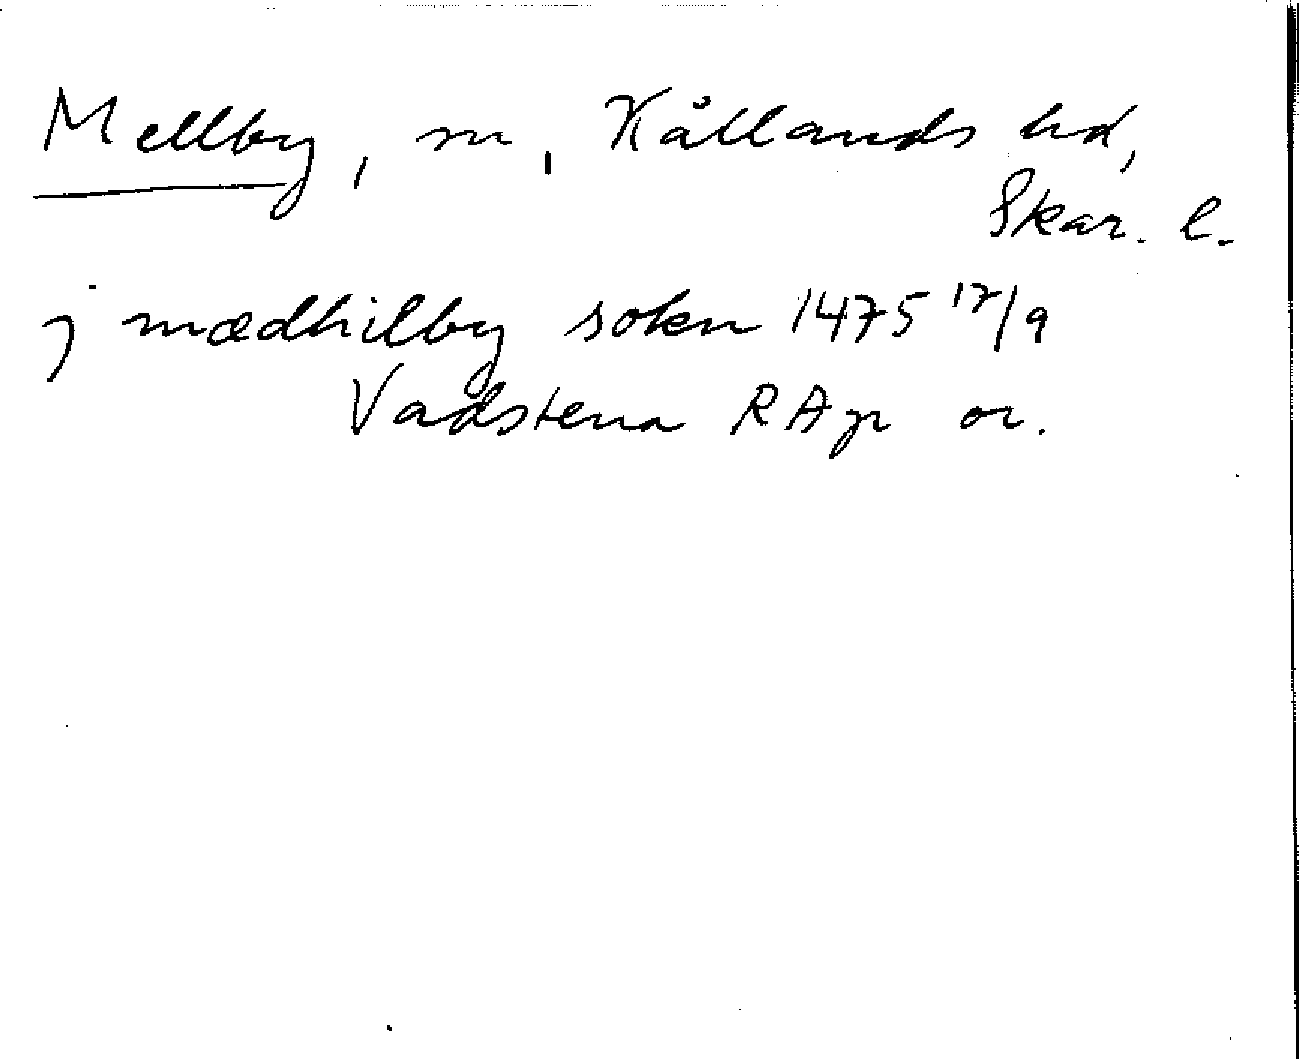 Mellby, sn, Kållands hd,
Skar. l.
j mædhilby sokn 1475 17/9
Vadstena RAp or.